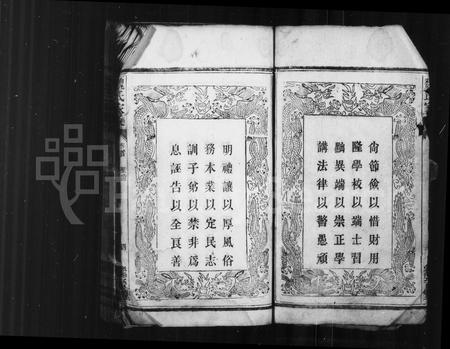 尙節儉以惜財用
隆學校以端士習
黜異端以崇正學
講法律以警愚頑
明禮讓以厚風俗
務本業以定民志
訓子弟以禁非爲
息誣告以全良善